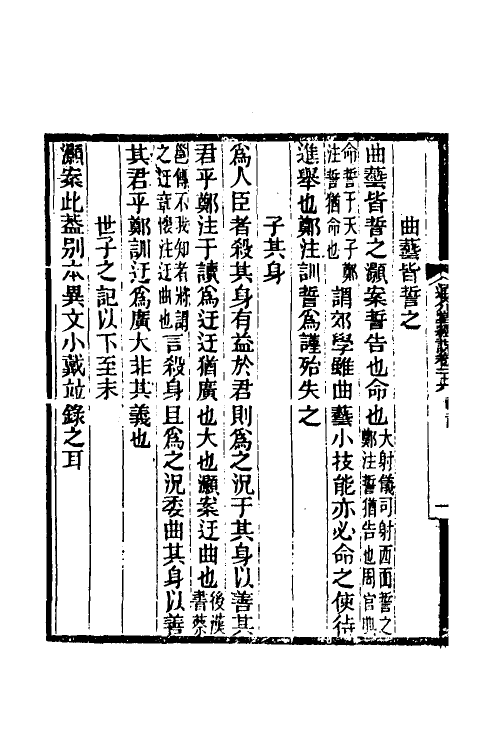 曲藝皆誓之
曲藝皆誓之灝案誓告也命也大射儀司射西面誓之
鄭注誓猶告也周官典
命誓于天子鄭
注誓猶命也謂郊學雖曲藝小技能亦必命之使待
進舉也鄭注訓誓爲謹殆失之
子其身
爲人臣者殺其身有益於君則爲之況于其身以善其
君乎鄭注于讀爲迂迂猶廣也大也灝案迂曲也後漢
書蔡
邕傳不我知者將謂
之迂章懷注迂曲也言殺身且爲之況委曲其身以善
其君乎鄭訓迂爲廣大非其義也
世子之記以下至末
灝案此葢别本異文小戴竝錄之耳